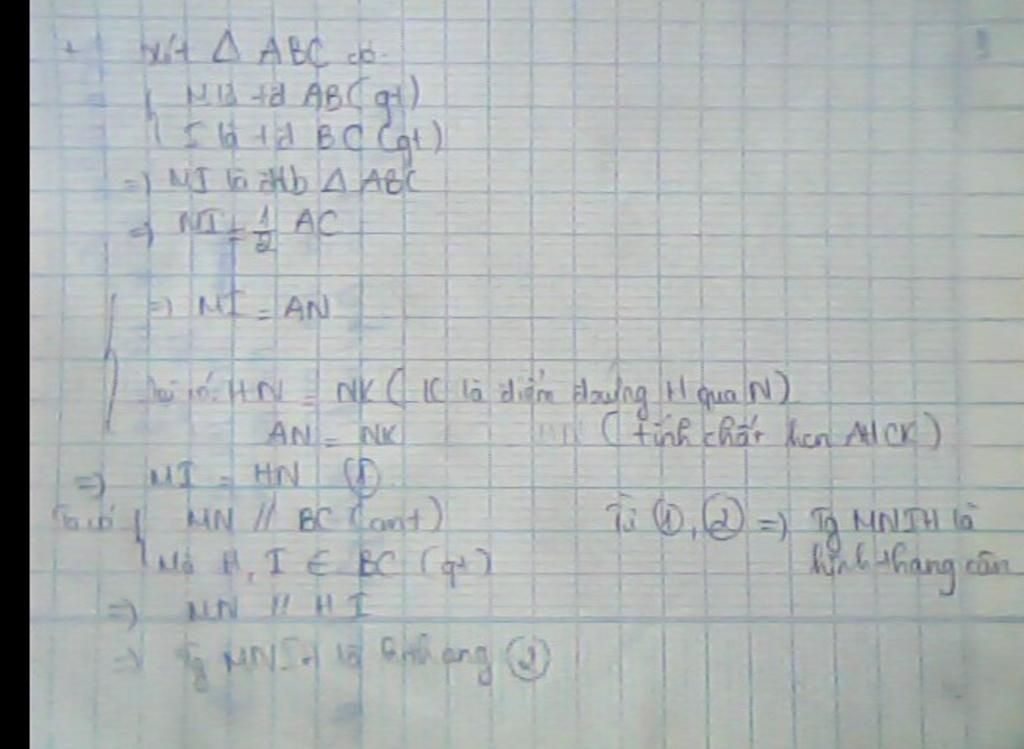 + Xét Δ ABC có
M là tđ AB (gt)
I là tđ BC (gt)
=> MI là đtb Δ ABC
=> MI = 1/2 AC
=> MI = AN
HN = NK (K là điểm đxứng H qua N)
AN = NK (tính chất hcn AHCK)
=> MI = HN ①
Ta có MN // BC (cmt)
Mà H, I ∈ BC (gt)
=> MN // HI
=> Tg MNIH là hthang ②
Từ ①, ② => Tg MNIH là
hình thang cân